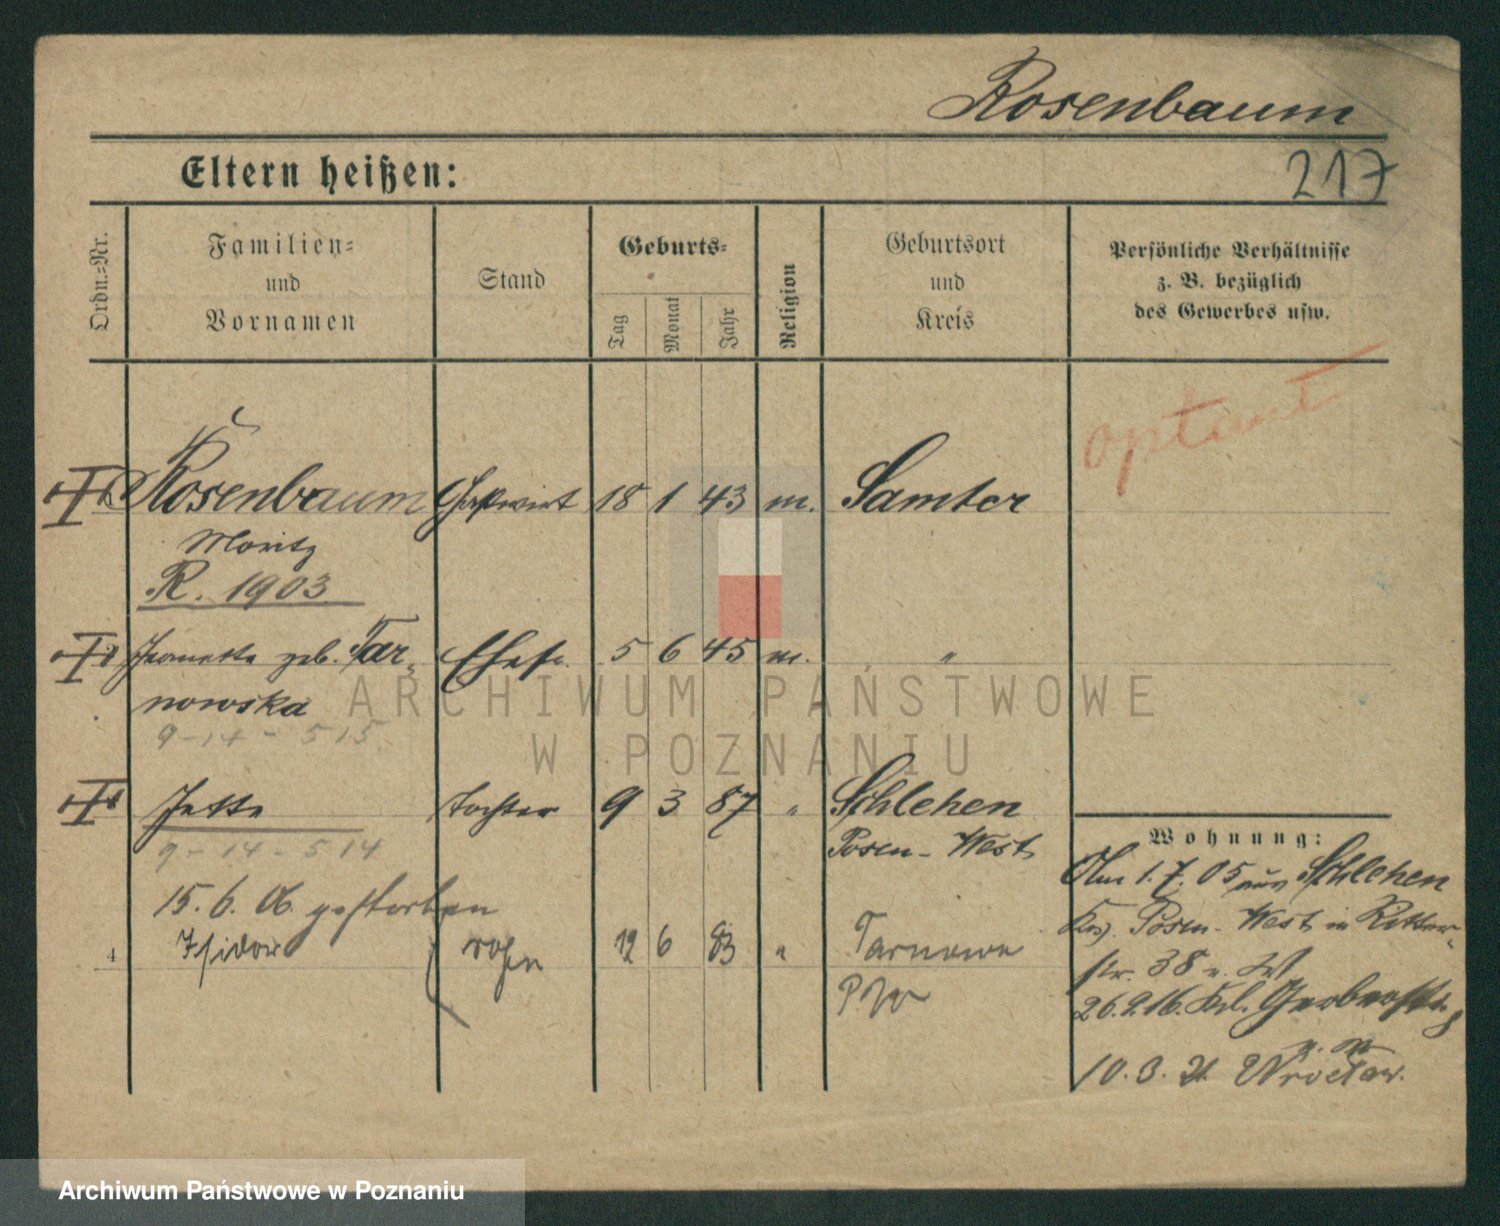 Rosenbaum
217
Eltern heißen:
Ordn.-Nr.
Familien-
und
Vornamen
Stand
Geburts-
Tag
Monat
Jahr
Religion
Geburtsort
und
Kreis
Persönliche Verhältnisse
z. B. bezüglich
des Gewerbes usw.
optant
Rosenbaum Gastwirt 18 1 43 m. Samter
Moritz
R. 1903
Jeanette geb. Tar-
nowska
Ehefr. 5 6 45 m. "
9-14-515
Jette Tochter 9 3 87 " Schlehen
Posen-West
9-14-514
15. 6. 06. gestorben
4 Isidor Sohn 12 6 83 " Tarnowo
P. W
Wohnung:
1. 7. 05 aus Schlehen
Krs. Posen-West in Ritter-
str. 38
26.9.16. Kl. Gerberstr. 8
10. 3. 21 Wrocław.
ARCHIWUM PAŃSTWOWE
W POZNANIU
Archiwum Państwowe w Poznaniu